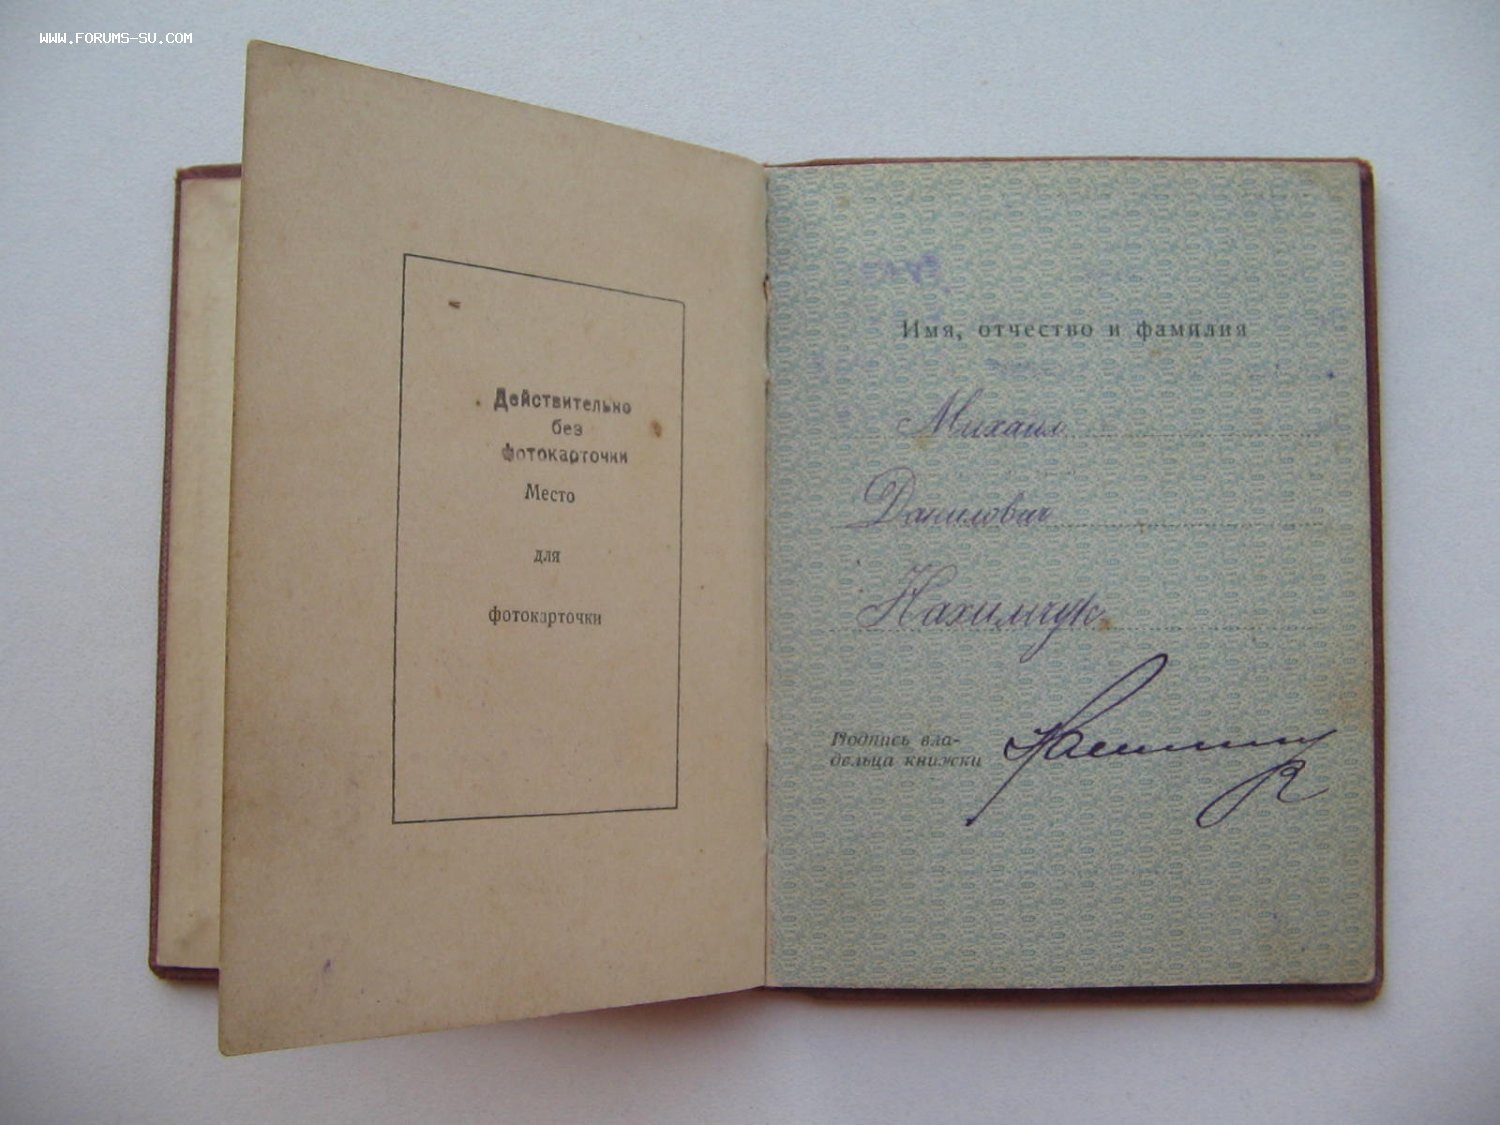 WWW.FORUMS-SU.COM
Действительно
без
фотокарточки
Место
для
фотокарточки
Имя, отчество и фамилия
Михаил
Данилович
Нахимчук
Подпись вла-
дельца книжки